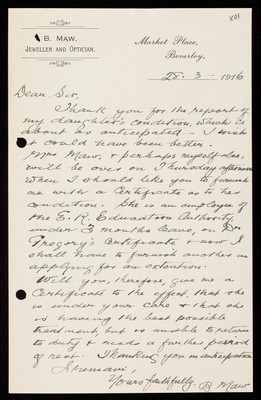 801
B. Maw,
Jeweller and Optician.
Market Place,
Beverley,
28. 3 – 1916
Dear Sir,
Thank you for the report of
my daughter's condition, which is
about as anticipated – I wish
it could have been better.
Mrs Maw, & perhaps myself also,
will be over on Thursday afternoon
when I should like you to furnish
me with a Certificate as to her
condition. She is an employee of
the E. R. Education Authority,
under 3 months leave, on Dr
Gregory's Certificate & now I
shall have to furnish another in
applying for an extention.
Will you, therefore, give me a
Certificate to the effect, that she
is under your care & that she
is having the best possible
treatment, but is unable to return
to duty & needs a further period
of rest. Thanking you in anticipation
I remain,
Yours faithfully, B Maw